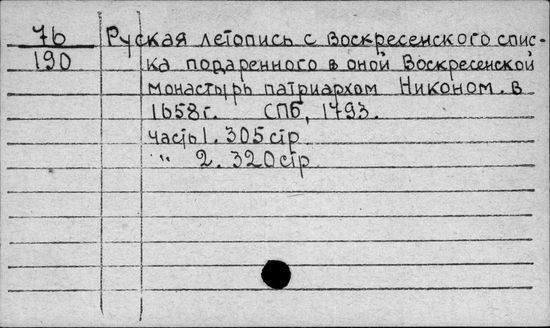 76 Руская летопись с Воскресенского спис-
190 ка подаренного в оной Воскресенской
монастырь патриархом Никоном в
1658 г. СПб, 1793.
часть 1. 305 стр.
" 2. 320 стр